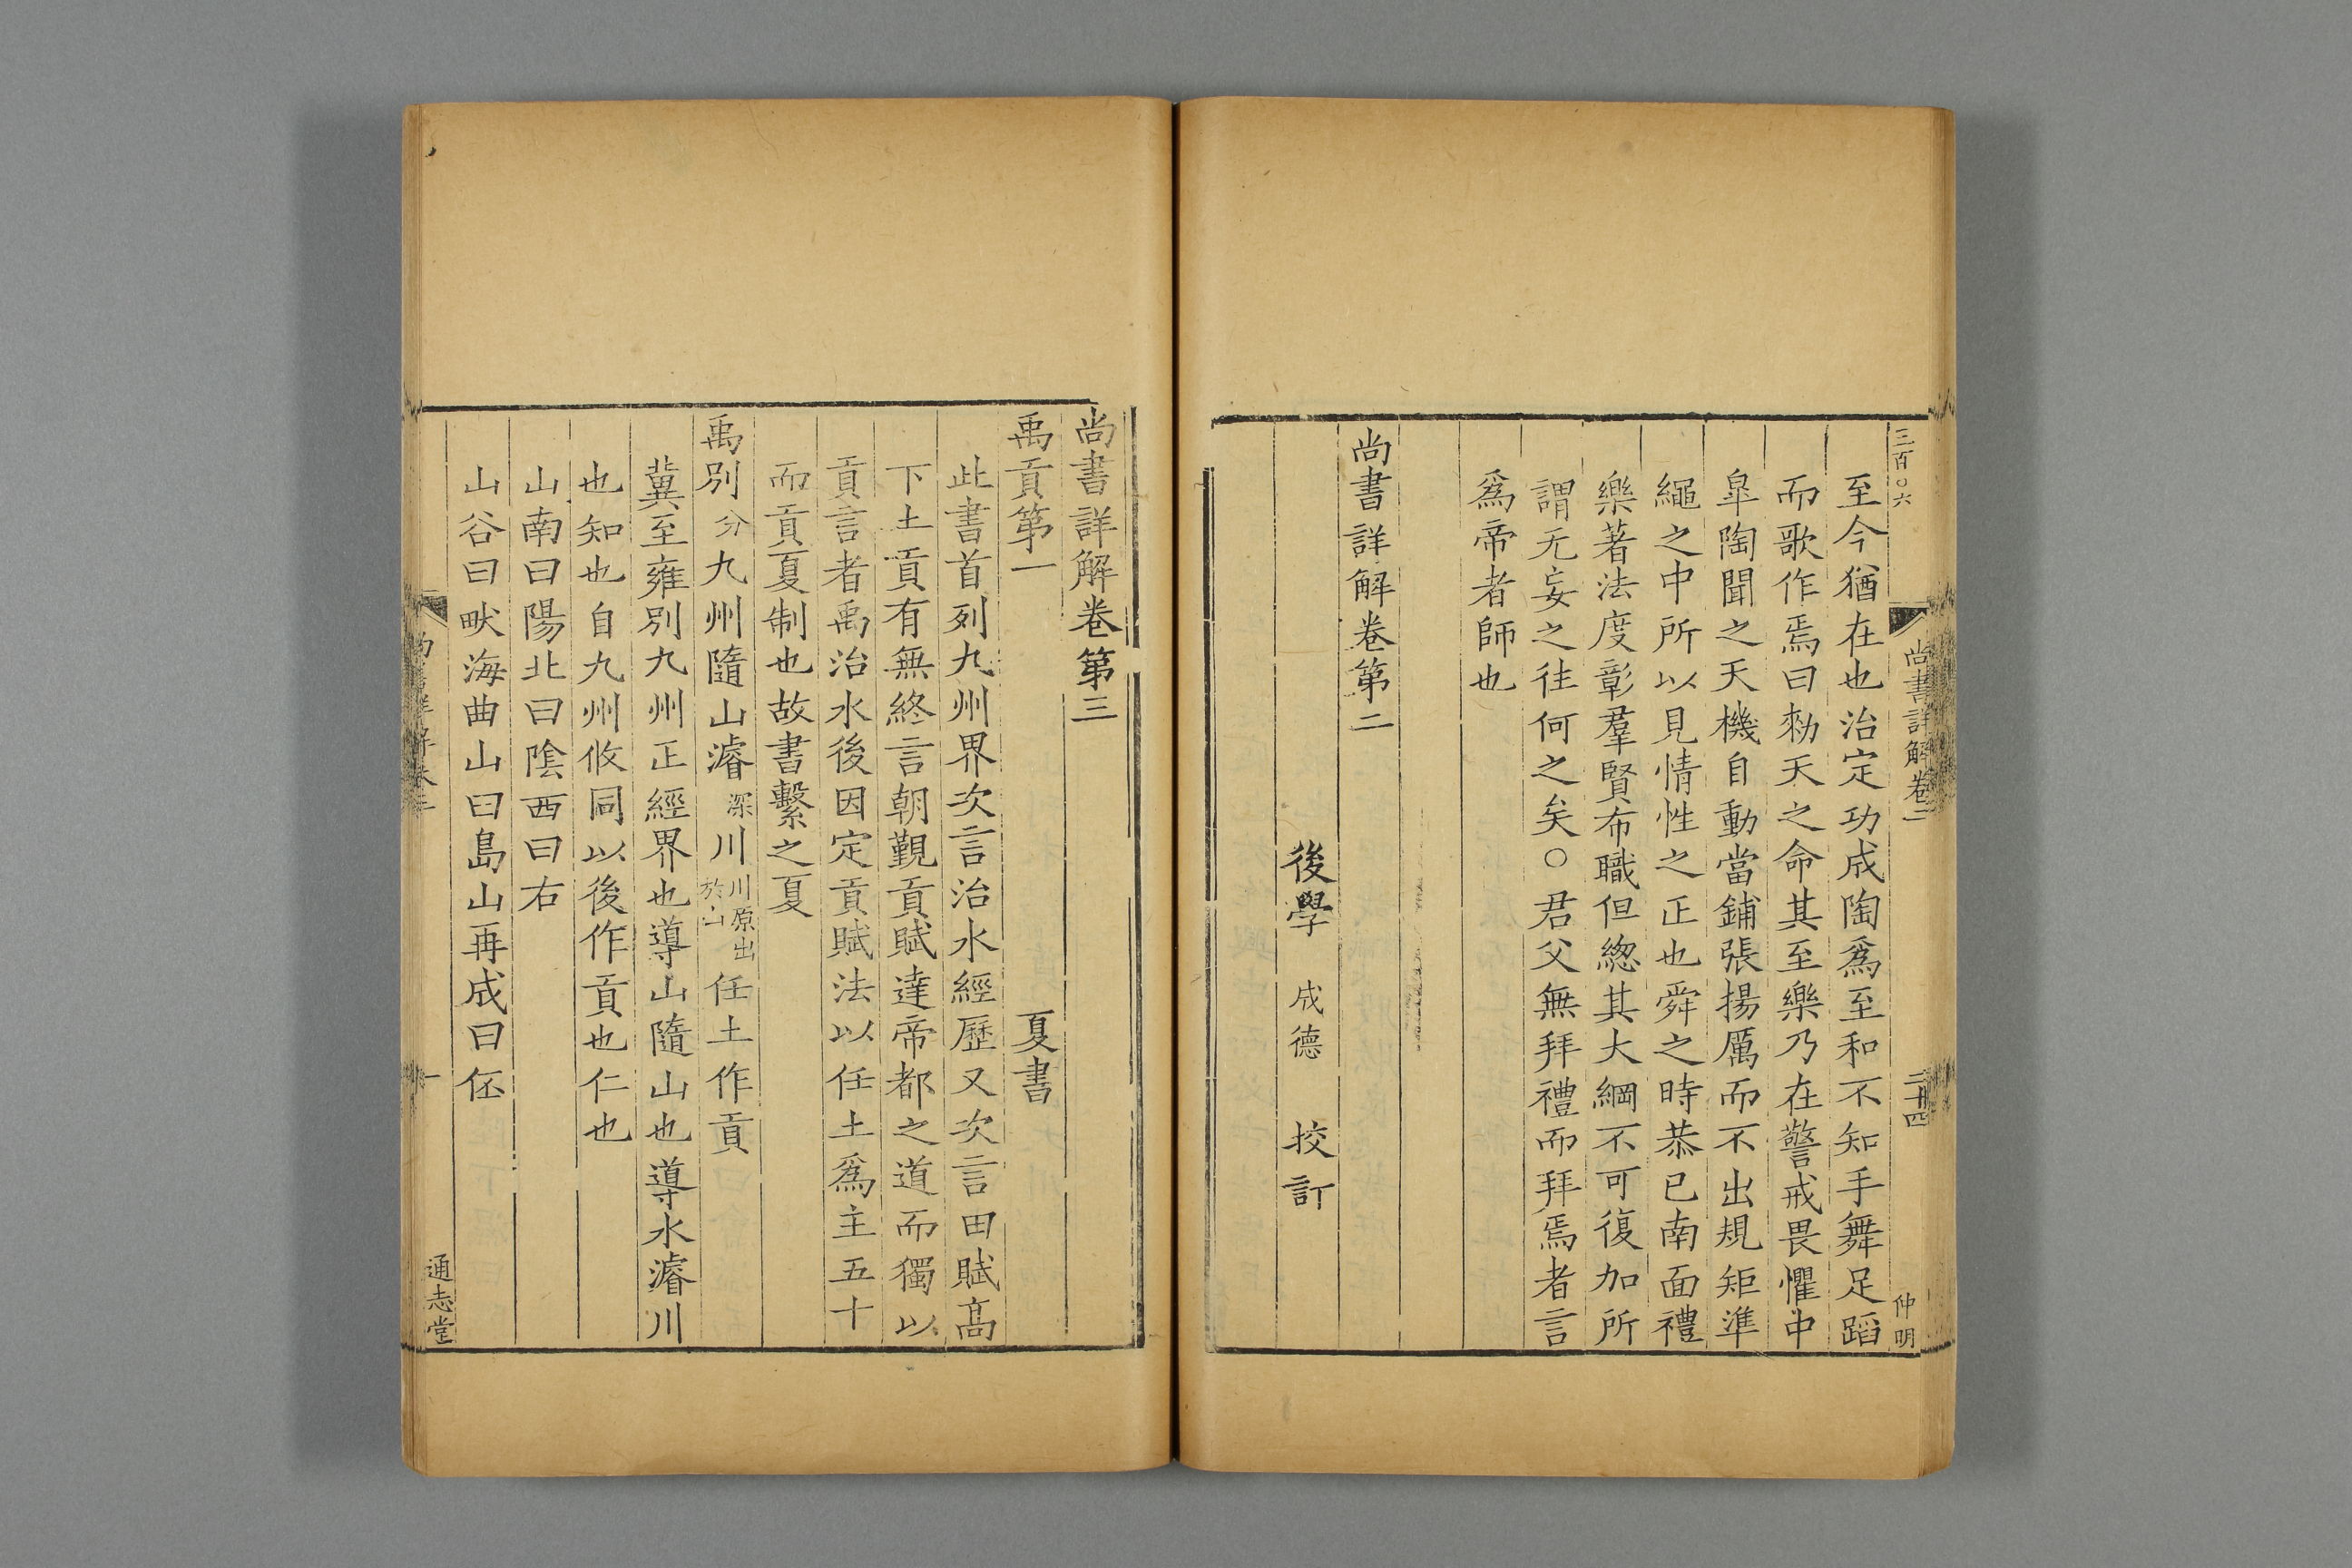 三百〇六
尚書詳解卷二
二十四
仲明
至今猶在也治定功成陶爲至和不知手舞足蹈
而歌作焉曰勑天之命其至樂乃在警戒畏懼中
臯陶聞之天機自動當鋪張揚厲而不出規矩準
繩之中所以見情性之正也舜之時恭已南面禮
樂著法度彰羣賢布職但緫其大綱不可復加所
謂无妄之往何之矣○君父無拜禮而拜焉者言
爲帝者師也
尚書詳解卷第二
後學 成德 挍訂
尚書詳解卷第三
禹貢第一 夏書
此書首列九州界次言治水經歷又次言田賦高
下土貢有無終言朝覲貢賦達帝都之道而獨以
貢言者禹治水後因定貢賦法以任土爲主五十
而貢夏制也故書繫之夏
禹別分九州隨山濬深川川原出於山任土作貢
冀至雍別九州正經界也導山隨山也導水濬川
也知也自九州攸同以後作貢也仁也
山南曰陽北曰陰西曰右
山谷曰畎海曲山曰島山再成曰伾
一
通志堂